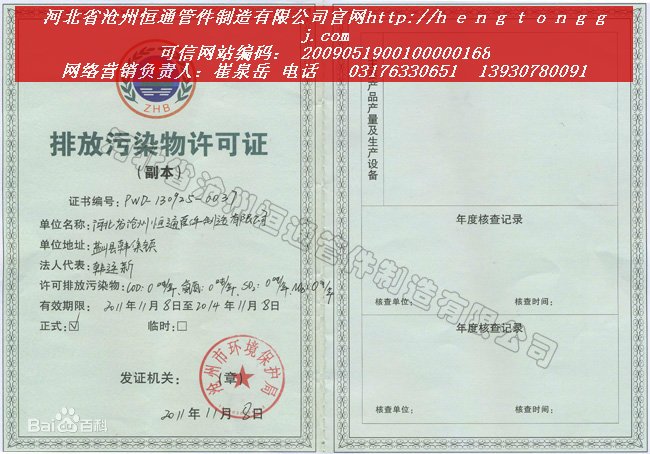 河北省沧州恒通管件制造有限公司官网http://hengtongg
j.com
可信网站编码: 2009051900100000168
网络营销负责人：崔泉岳 电话 03176330651 13930780091
ZHB
排放污染物许可证
(副本)
证书编号: PWD-130925-0037
单位名称: 河北省沧州恒通管件制造有限公司
单位地址: 盐山县韩集镇
法人代表: 韩
许可排放污染物: COD: 0 吨/年, 氨氮: 0 吨/年, SO₂: 0 吨/年
有效期限: 2011年11月8日至2014年11月8日
正式: ☑ 临时: □
发证机关: (章)
沧州市环境保护局
2011年11月8日
产品产量及生产设备
年度核查记录
核查单位: 核查时间:
年度核查记录
核查单位: 核查时间:
河北省沧州恒通管件制造有限公司
Bai百科